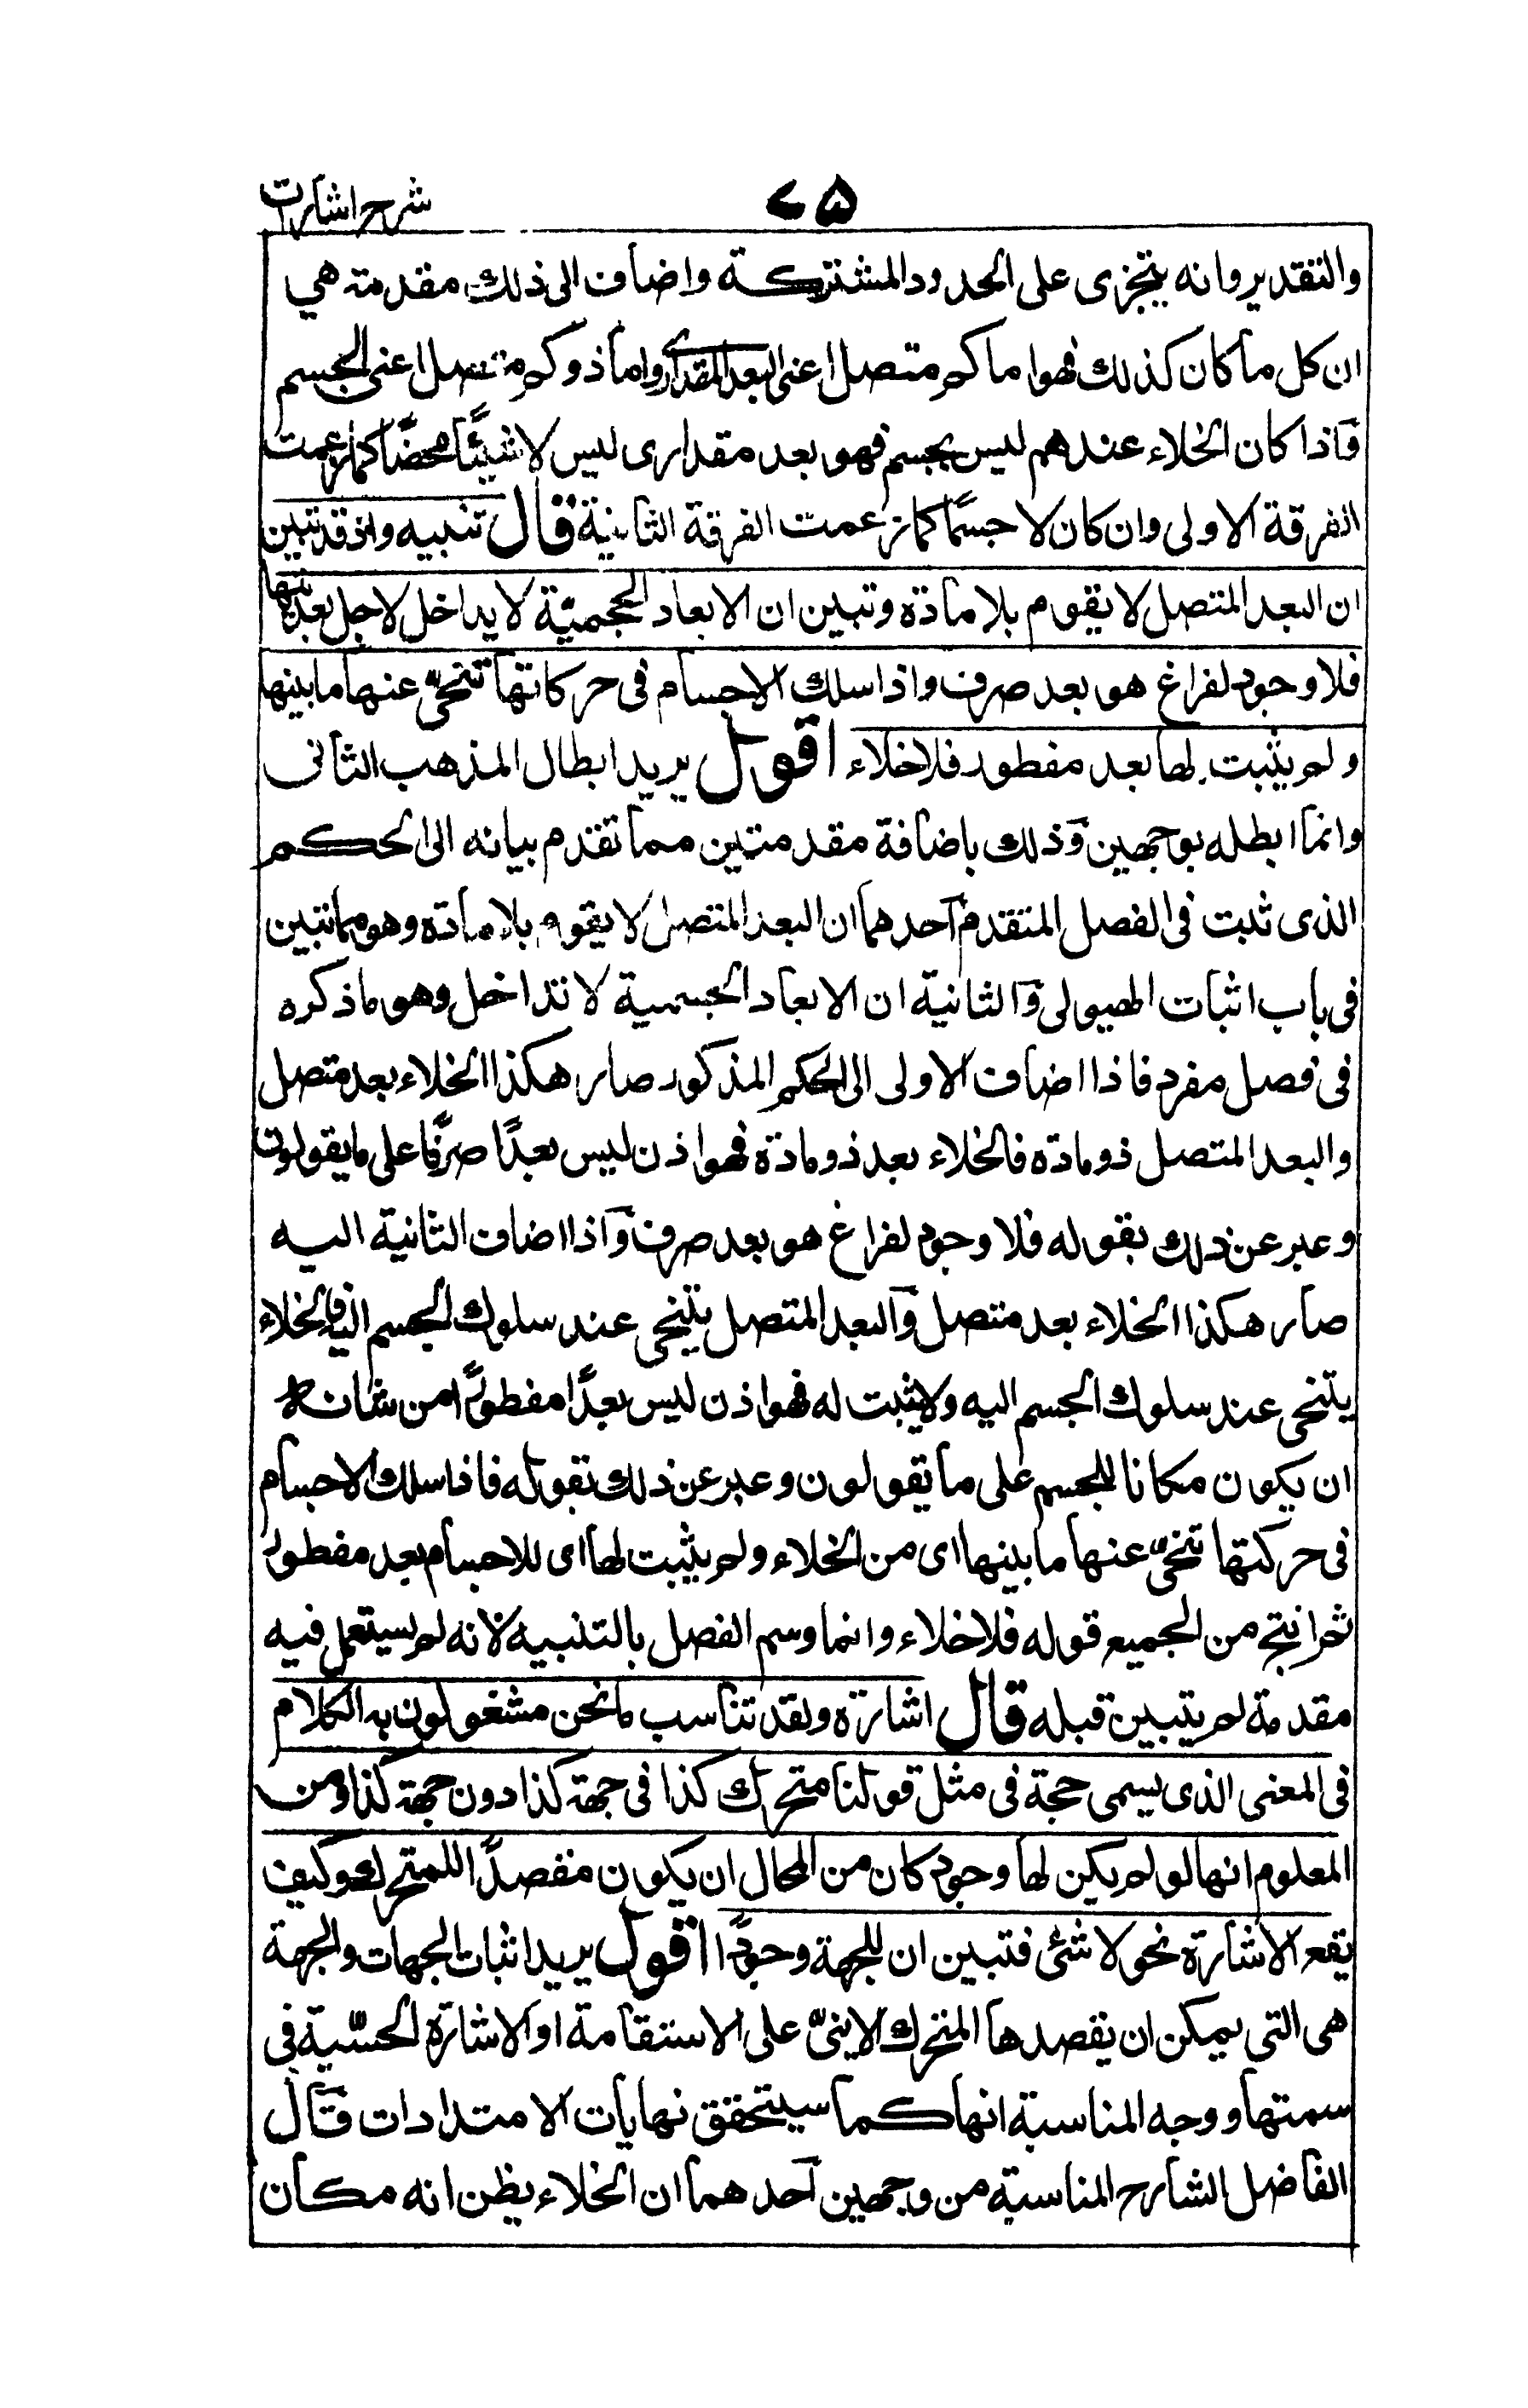 شرح اشارات
٧٥
والتقدير وانه يتجزى على الحدود المشتركة واضاف الى ذلك مقدمة هي
ان كل ما كان كذلك فهو اما كم متصل اعنى البعد المقدارى واما ذو كم متصل اعنى الجسم
فاذا كان الخلاء عندهم ليس بجسم فهو بعد مقدارى ليس لا شيئًا محضًا كما زعمت
الفرقة الاولى وان كان لا جسمًا كما زعمت الفرقة الثانية قال تنبيه واذ قد تبين
ان البعد المتصل لا يقوم بلا مادة وتبين ان الابعاد الحجمية لا يداخل لاجل بعديتها
فلا وجود لفراغ هو بعد صرف واذا سلك الاجسام فى حركاتها تنحى عنها ما بينها
ولم يثبت لها بعد مفطور فلا خلاء اقول يريد ابطال المذهب الثانى
وانما ابطله بوجهين وذلك باضافة مقدمتين مما تقدم بيانه الى الحكم
الذى ثبت فى الفصل المتقدم احدهما ان البعد المتصل لا يقوم بلا مادة وهو مما تبين
فى باب اثبات الهيولى والثانية ان الابعاد الجسمية لا تتداخل وهو ما ذكره
فى فصل مفرد فاذا اضاف الاولى الى الحكم المذكور صار هكذا الخلاء بعد متصل
والبعد المتصل ذو مادة فالخلاء بعد ذو مادة فهو اذن ليس بعدًا صرفًا على ما يقولون
وعبر عن ذلك بقوله فلا وجود لفراغ هو بعد صرف واذا اضاف الثانية اليه
صار هكذا الخلاء بعد متصل والبعد المتصل يتنحى عند سلوك الجسم اليه فالخلاء
يتنحى عند سلوك الجسم اليه ولا يثبت له فهو اذن ليس بعدًا مفطورًا من شانه
ان يكون مكانا للجسم على ما يقولون وعبر عن ذلك بقوله فاذا سلك الاجسام
فى حركتها تنحى عنها ما بينها اى من الخلاء ولم يثبت لها اى للاجسام بعد مفطور
ثم انتج من الجميع قوله فلا خلاء وانما وسم الفصل بالتنبيه لانه لم يستعمل فيه
مقدمة لم يتبين قبله قال اشارة ولقد تناسب ما نحن مشغولون به الكلام
فى المعنى الذى يسمى جهة فى مثل قولنا متحرك كذا فى جهة كذا دون جهة كذا ومن
المعلوم انها لو لم يكن لها وجود كان من المحال ان يكون مقصدًا للمتحرك وكيف
يقع الاشارة نحو لا شئ فتبين ان للجهة وجودًا اقول يريد اثبات الجهات والجهة
هى التى يمكن ان يقصدها المتحرك الاينىّ على الاستقامة او الاشارة الحسّية فى
سمتها ووجه المناسبة انها كما سيتحقق نهايات الامتدادات قال
الفاضل الشارح المناسبة من وجهين احدهما ان الخلاء يظن انه مكان